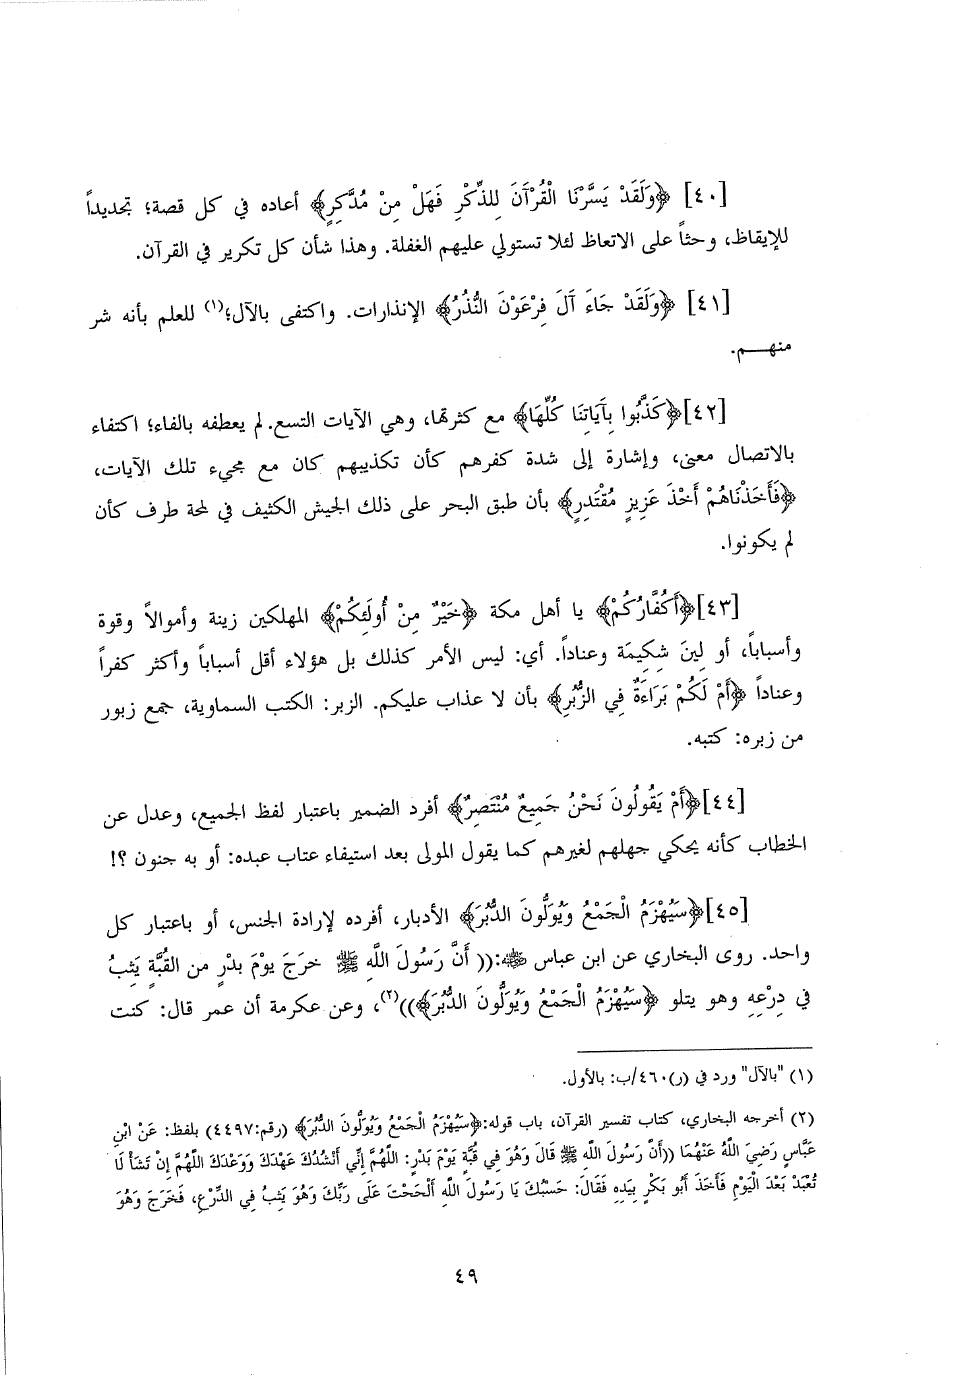 [٤٠] ﴿وَلَقَدْ يَسَّرْنَا الْقُرْآنَ لِلذِّكْرِ فَهَلْ مِنْ مُدَّكِرٍ﴾ أعاده في كل قصة؛ تجديداً
للإيقاظ، وحثاً على الاتعاظ لئلا تستولي عليهم الغفلة. وهذا شأن كل تكرير في القرآن.
[٤١] ﴿وَلَقَدْ جَاءَ آلَ فِرْعَوْنَ النُّذُرُ﴾ الإنذارات. واكتفى بالآل؛(١) للعلم بأنه شر
منهـــم.
[٤٢]﴿كَذَّبُوا بِآيَاتِنَا كُلِّهَا﴾ مع كثرتها، وهي الآيات التسع. لم يعطفه بالفاء؛ اكتفاء
بالاتصال معنى، وإشارة إلى شدة كفرهم كأن تكذيبهم كان مع مجيء تلك الآيات،
﴿فَأَخَذْنَاهُمْ أَخْذَ عَزِيزٍ مُقْتَدِرٍ﴾ بأن طبق البحر على ذلك الجيش الكثيف في لمحة طرف كأن
لم يكونوا.
[٤٣]﴿أَكُفَّارُكُمْ﴾ يا أهل مكة ﴿خَيْرٌ مِنْ أُولَئِكُمْ﴾ المهلكين زينة وأموالاً وقوة
وأسباباً، أو لِينَ شكِيمَة وعناداً. أي: ليس الأمر كذلك بل هؤلاء أقل أسباباً وأكثر كفراً
وعناداً ﴿أَمْ لَكُمْ بَرَاءَةٌ فِي الزُّبُرِ﴾ بأن لا عذاب عليكم. الزبر: الكتب السماوية، جمع زبور
من زبره: كتبه.
[٤٤]﴿أَمْ يَقُولُونَ نَحْنُ جَمِيعٌ مُنْتَصِرٌ﴾ أفرد الضمير باعتبار لفظ الجميع، وعدل عن
الخطاب كأنه يحكي جهلهم لغيرهم كما يقول المولى بعد استيفاء عتاب عبده: أو به جنون ؟!
[٤٥]﴿سَيُهْزَمُ الْجَمْعُ وَيُوَلُّونَ الدُّبُرَ﴾ الأدبار، أفرده لإرادة الجنس، أو باعتبار كل
واحد. روى البخاري عن ابن عباس ﵁:(( أَنَّ رَسُولَ اللَّهِ ﷺ خرَجَ يوْمَ بدْرٍ من القُبَّةِ يَثِبُ
في دِرْعِهِ وهو يتلو ﴿سَيُهْزَمُ الْجَمْعُ وَيُوَلُّونَ الدُّبُرَ﴾))(٢)، وعن عكرمة أن عمر قال: كنت
(١) "بالآل" ورد في (ر)٤٦٠/ب: بالأول.
(٢) أخرجه البخاري، كتاب تفسير القرآن، باب قوله:﴿سَيُهْزَمُ الْجَمْعُ وَيُوَلُّونَ الدُّبُرَ﴾ (رقم:٤٤٩٧) بلفظ: عَنْ ابْنِ
عَبَّاسٍ رَضِيَ اللَّهُ عَنْهُمَا ((أَنَّ رَسُولَ اللَّهِ ﷺ قَالَ وَهُوَ فِي قُبَّةٍ يَوْمَ بَدْرٍ: اللَّهُمَّ إِنِّي أَنْشُدُكَ عَهْدَكَ وَوَعْدَكَ اللَّهُمَّ إِنْ تَشَأْ لَا
تُعْبَدْ بَعْدَ الْيَوْمِ فَأَخَذَ أَبُو بَكْرٍ بِيَدِهِ فَقَالَ: حَسْبُكَ يَا رَسُولَ اللَّهِ أَلْحَحْتَ عَلَى رَبِّكَ وَهُوَ يَثِبُ فِي الدِّرْعِ، فَخَرَجَ وَهُوَ
٤٩